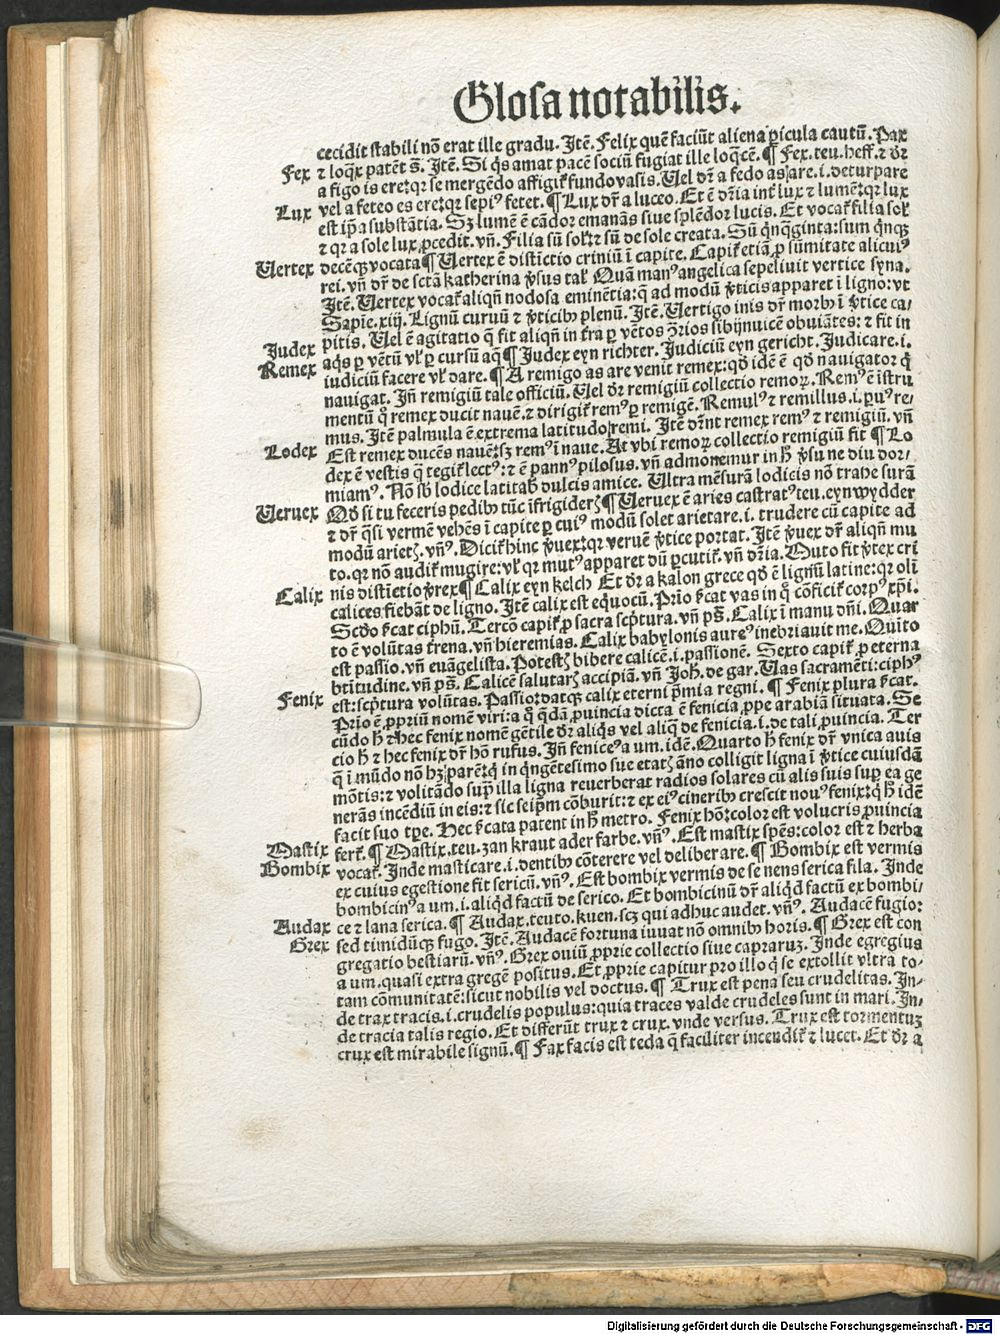 Glosa notabilis.
cecidit stabili nō erat ille gradu. Itē. Felix quē faciūt aliena ꝑicula cautū. Pax
Fex ⁊ loqꝛ patēt s̄. Itē. Si q̄s amat pacē sociū fugiat ille loq̄cē. ¶ Fex. teu. heff. ⁊ dr̄
a figo is ere:qꝛ se mergēdo affigit᷑ fundo vasis. Uel dr̄ a fedo as are. i. deturpare
Lux vel a feteo es ere:qꝛ sepiꝰ fetet. ¶ Lux dr̄ a luceo. Et ē dr̄ia int̄ lux ⁊ lumē:qꝛ lux
est ip̄a substātia. Sꝫ lumē ē cādor emanās siue splēdor lucis. Et vocat᷑ filia sol᷑
⁊ qꝛ a sole lux ꝓcedit. vn̄. Filia sū sol᷑:⁊ sū de sole creata. Sū q̄nq̄ginta:sum q̄nqꝫ
Uertex decēqꝫ vocata ¶ Uertex ē distīctio criniū ī capite. Capit᷑ etiā ꝓ sūmitate alicuiꝰ
rei. vn̄ dr̄ de sctā katherina ꝟsus tal᷑ Quā manꝰ angelica sepeliuit vertice syna.
Itē. Uertex vocat᷑ aliqn̄ nodosa eminētia:q̄ ad modū ꝟticis apparet ī ligno:vt
Sapiē. xiij. Lignū curuū ⁊ ꝟticibꝰ plenū. Itē. Uertigo inis dr̄ morbꝰ ī ꝟtice ca-
pitis. Uel ē agitatio q̄ fit aliqn̄ in fra ꝑ vētos ꝯ̄rios sibijnuicē obuiātes: ⁊ fit in
Judex aq̄s ꝑ vētū vl᷑ ꝑ cursū aq̄ ¶ Judex eyn richter. Judiciū eyn gericht. Judicare. i.
Remex iudiciū facere vl᷑ dare. ¶ A remigo as are venit remex:qd̄ idē ē qd̄ nauigator q̄
nauigat. Jn̄ remigiū tale officiū. Uel dr̄ remigiū collectio remoꝝ. Remꝰ ē īstru
mentū q̊ remex ducit nauē. ⁊ dirigit᷑ remꝰ ꝑ remigē. Remulꝰ ⁊ remillus. i. ꝑuꝰ re-
mus. Itē palmula ē extrema latitudo remi. Itē dr̄nt remex remꝰ ⁊ remigiū. vn̄
Lodex Est remex ducēs nauē:sꝫ remꝰ ī naue. At vbi remoꝝ collectio remigiū fit ¶ Lo
dex ē vestis q̄ tegit᷑ lectꝰ: ⁊ ē pannꝰ pilosus. vn̄ admonemur in h̄ ꝟsu ne diu dor-
miamꝰ. Nō sb̄ lodice latitabꝰ dulcis amice. Ultra mēsurā lodicis nō trahe surā
Ueruex Qd̄ si tu feceris pedibꝰ tūc īfrigiderꝫ ¶ Ueruex ē aries castratꝰ teu. eyn wydder
⁊ dr̄ q̄si vermē vehēs ī capite ꝑ cuiꝰ modū solet arietare. i. trudere cū capite ad
modū arietꝫ. vn̄ꝰ. Dicit᷑ hinc ꝟuex:qꝛ veruē ꝟtice portat. Itē ꝟuex dr̄ aliqn̄ mu
to. qꝛ nō audit᷑ mugire:vl᷑ qꝛ mutꝰ apparet dū ꝑcutit᷑. vn̄ dr̄ia. Muto fit ꝟtex cri
Calix nis distīctio ꝟrex ¶ Calix eyn kelch Et dr̄ a kalon grece qd̄ ē lignū latine:qꝛ olī
calices fiebāt de ligno. Itē calix est equocū. Prīo s̄cat vas in q̊ cōficit᷑ corpꝰ xp̄i.
Scd̄o s̄cat ciphū. Tercō capit᷑ ꝓ sacra sc̄ptura. vn̄ ps̄. Calix ī manu dn̄i. Quar
to ē volūtas frena. vn̄ hieremias. Calix babylonis aureꝰ inebriauit me. Quīto
est passio. vn̄ euāgelista. Potestꝫ bibere calicē. i. passionē. Sexto capit᷑ ꝓ eterna
bt̄itudine. vn̄ ps̄. Calicē salutarꝫ accipiā. vn̄ Joh̄. de gar. Uas sacramēti:ciphꝰ
Fenix est:sc̄ptura volūtas. Passio:datqꝫ calix eterni p̄mia regni. ¶ Fenix plura s̄cat.
Prīo ē ꝓpriū nomē viri:a q̊ q̄dā ꝓuincia dicta ē fenicia ꝓpe arabiā situata. Se
cūdo h̄ ⁊ hec fenix nomē gētile dr̄ aliq̄s vel aliq̄ de fenicia. i. de tali ꝓuincia. Ter
cio h̄ ⁊ hec fenix dr̄ hō rufus. Jn̄ feniceꝰ a um. idē. Quarto h̄ fenix dr̄ vnica auis
q̄ ī mūdo nō hꝫ parē:q̄ in q̄ngētesimo sue etatꝫ āno colligit ligna ī ꝟtice cuiusdā
mōtis:⁊ volitādo sup̄ illa ligna reuerberat radios solares cū alis suis suꝑ ea ge
nerās incēdiū in eis:⁊ sic seip̄m cōburit:⁊ ex eiꝰ cineribꝰ crescit nouꝰ fenix:q̄ h̄ idē
facit suo tꝑe. Hec s̄cata patent in h̄ metro. Fenix hō:color est volucris ꝓuincia
Mastix fert᷑. ¶ Mastix. teu. zan kraut ader farbe. vn̄ꝰ. Est mastix spēs:color est ⁊ herba
Bombix vocat᷑. Inde masticare. i. dentibꝰ cōterere vel deliberare. ¶ Bombix est vermis
ex cuius egestione fit sericū. vn̄ꝰ. Est bombix vermis de se nens serica fila. Inde
bombicinꝰ a um. i. aliq̇d factū de serico. Et bombicinū dr̄ aliq̇d factū ex bombi-
Audax ce ⁊ lana serica. ¶ Audax. teuto. kuen. scꝫ qui adhuc audet. vn̄ꝰ. Audacē fugio:
Grex sed timidūqꝫ fugo. Itē. Audacē fortuna iuuat nō omnibꝰ horis. ¶ Grex est con
gregatio bestiarū. vn̄ꝰ. Grex ouiū ꝓprie collectio siue capraruꝫ. Inde egregius
a um. quasi extra gregē positus. Et ꝓprie capitur pro illo q̄ se extollit vltra to-
tam cōmunitatē:sicut nobilis vel doctus. ¶ Trux est pena seu crudelitas. In-
de trax tracis. i. crudelis populus:quia traces valde crudeles sunt in mari. In-
de tracia talis regio. Et differūt trux ⁊ crux. vnde versus. Trux est tormentuꝫ
crux est mirabile signū. ¶ Fax facis est teda q̄ faciliter incendit᷑ ⁊ lucet. Et dr̄ a
Digitalisierung gefördert durch die Deutsche Forschungsgemeinschaft - DFG